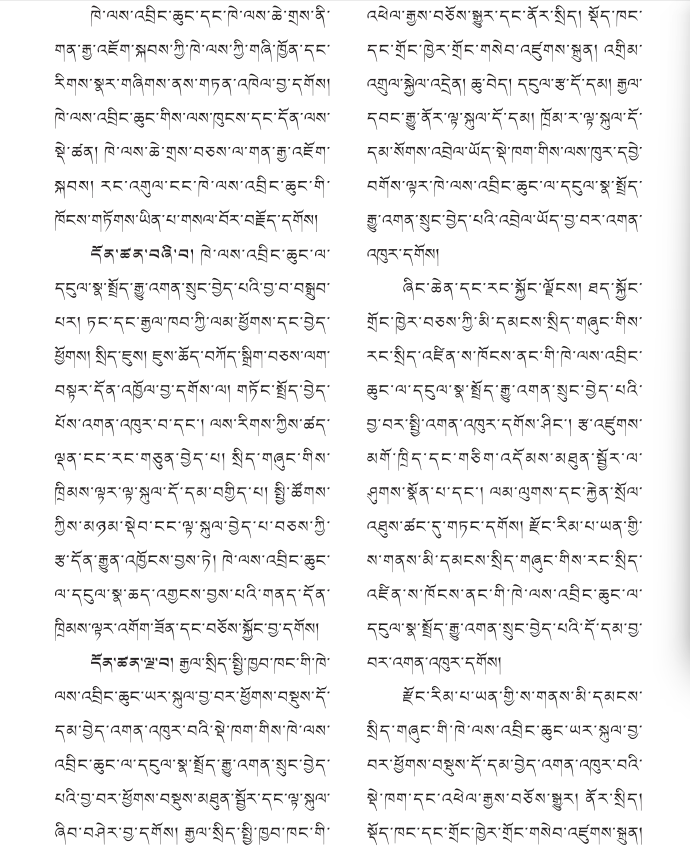 ཁེ་ལས་འབྲིང་ཆུང་དང་ཁེ་ལས་ཆེ་གྲས་ནི་
གན་རྒྱ་འཇོག་སྐབས་ཀྱི་ཁེ་ལས་ཀྱི་གཞི་ཁྱོན་དང་
རིགས་སྣར་གཞིགས་ནས་གཏན་འཁེལ་བྱ་དགོས།
ཁེ་ལས་འབྲིང་ཆུང་གིས་ལས་ཁུངས་དང་དོན་ལས་
སྡེ་ཚན། ཁེ་ལས་ཆེ་གྲས་བཅས་ལ་གན་རྒྱ་འཇོག་
སྐབས། རང་འགུལ་ངང་ཁེ་ལས་འབྲིང་ཆུང་གི་
ཁོངས་གཏོགས་ཡིན་པ་གསལ་བོར་བརྗོད་དགོས།
དོན་ཚན་བཞི་བ། ཁེ་ལས་འབྲིང་ཆུང་ལ་
དངུལ་སྣ་སྤྲོད་རྒྱུ་འགན་སྲུང་བྱེད་པའི་བྱ་བ་བསྒྲུབ་
པར། ཏང་དང་རྒྱལ་ཁབ་ཀྱི་ལམ་ཕྱོགས་དང་བྱེད་
ཕྱོགས། སྲིད་ཇུས། ཇུས་ཆོད་བཀོད་སྒྲིག་བཅས་ལག་
བསྟར་དོན་འཁྱོལ་བྱ་དགོས་ལ། གཏོང་སྤྲོད་བྱེད་
པོས་འགན་འཁུར་བ་དང་། ལས་རིགས་ཀྱིས་ཚད་
ལྡན་ངང་རང་གཅུན་བྱེད་པ། སྲིད་གཞུང་གིས་
ཁྲིམས་ལྟར་ལྟ་སྐུལ་དོ་དམ་བགྱིད་པ། སྤྱི་ཚོགས་
ཀྱིས་མཉམ་སྡེབ་ངང་ལྟ་སྐུལ་བྱེད་པ་བཅས་ཀྱི་
རྩ་དོན་རྒྱུན་འཁྱོངས་བྱས་ཏེ། ཁེ་ལས་འབྲིང་ཆུང་
ལ་དངུལ་སྣ་ཆད་འགྱངས་བྱས་པའི་གནད་དོན་
ཁྲིམས་ལྟར་འགོག་ཟོན་དང་བཅོས་སྐྱོང་བྱ་དགོས།
དོན་ཚན་ལྔ་བ། རྒྱལ་སྲིད་སྤྱི་ཁྱབ་ཁང་གི་ཁེ་
ལས་འབྲིང་ཆུང་ཡར་སྐུལ་བྱ་བར་ཕྱོགས་བསྡུས་དོ་
དམ་བྱེད་འགན་འཁུར་བའི་སྡེ་ཁག་གིས་ཁེ་ལས་
འབྲིང་ཆུང་ལ་དངུལ་སྣ་སྤྲོད་རྒྱུ་འགན་སྲུང་བྱེད་
པའི་བྱ་བར་ཕྱོགས་བསྡུས་མཐུན་སྦྱོར་དང་ལྟ་སྐུལ་
ཞིབ་བཤེར་བྱ་དགོས། རྒྱལ་སྲིད་སྤྱི་ཁྱབ་ཁང་གི་
འཕེལ་རྒྱས་བཅོས་སྒྱུར་དང་ནོར་སྲིད། སྡོད་ཁང་
དང་གྲོང་ཁྱེར་གྲོང་གསེབ་འཛུགས་སྐྲུན། འགྲིམ་
འགྲུལ་སྐྱེལ་འདྲེན། ཆུ་བེད། དངུལ་རྩ་དོ་དམ། རྒྱལ་
དབང་རྒྱུ་ནོར་ལྟ་སྐུལ་དོ་དམ། ཁྲོམ་ར་ལྟ་སྐུལ་དོ་
དམ་སོགས་འབྲེལ་ཡོད་སྡེ་ཁག་གིས་ལས་ཁུར་དབྱེ་
བགོས་ལྟར་ཁེ་ལས་འབྲིང་ཆུང་ལ་དངུལ་སྣ་སྤྲོད་
རྒྱུ་འགན་སྲུང་བྱེད་པའི་འབྲེལ་ཡོད་བྱ་བར་འགན་
འཁུར་དགོས།
ཞིང་ཆེན་དང་རང་སྐྱོང་ལྗོངས། ཐད་སྐྱོང་
གྲོང་ཁྱེར་བཅས་ཀྱི་མི་དམངས་སྲིད་གཞུང་གིས་
རང་སྲིད་འཛིན་ས་ཁོངས་ནང་གི་ཁེ་ལས་འབྲིང་
ཆུང་ལ་དངུལ་སྣ་སྤྲོད་རྒྱུ་འགན་སྲུང་བྱེད་པའི་
བྱ་བར་སྤྱི་འགན་འཁུར་དགོས་ཤིང་། རྩ་འཛུགས་
མགོ་ཁྲིད་དང་གཅིག་འདོམས་མཐུན་སྦྱོར་ལ་
ཤུགས་སྣོན་པ་དང་། ལམ་ལུགས་དང་རྐྱེན་སྲོལ་
འཐུས་ཚང་དུ་གཏང་དགོས། རྫོང་རིམ་པ་ཡན་གྱི་
ས་གནས་མི་དམངས་སྲིད་གཞུང་གིས་རང་སྲིད་
འཛིན་ས་ཁོངས་ནང་གི་ཁེ་ལས་འབྲིང་ཆུང་ལ་
དངུལ་སྣ་སྤྲོད་རྒྱུ་འགན་སྲུང་བྱེད་པའི་དོ་དམ་བྱ་
བར་འགན་འཁུར་དགོས།
རྫོང་རིམ་པ་ཡན་གྱི་ས་གནས་མི་དམངས་
སྲིད་གཞུང་གི་ཁེ་ལས་འབྲིང་ཆུང་ཡར་སྐུལ་བྱ་
བར་ཕྱོགས་བསྡུས་དོ་དམ་བྱེད་འགན་འཁུར་བའི་
སྡེ་ཁག་དང་འཕེལ་རྒྱས་བཅོས་སྒྱུར། ནོར་སྲིད།
སྡོད་ཁང་དང་གྲོང་ཁྱེར་གྲོང་གསེབ་འཛུགས་སྐྲུན།